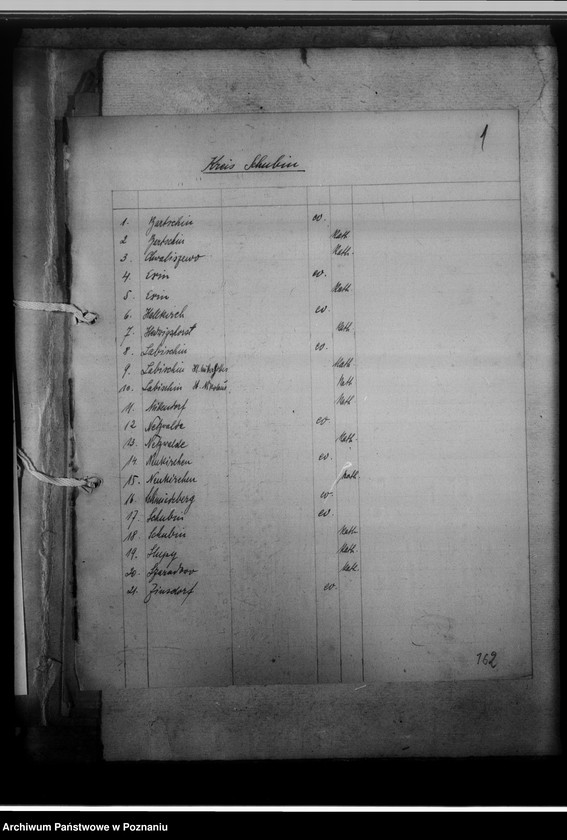 1
Kreis Schubin
1. Bartschin ev.
2 Bartschin Kath.
3. Chwaliszewo Kath.
4. Exin ev.
5. Exin Kath.
6. Hallkirch ev.
7. Hedwigshorst Kath.
8. Labischin ev.
9. Labischin Kath.
10. Labischin St. Nikolaus Kath.
11. Kath.
12 Netzwalde ev
13. Netzwalde Kath.
14. Neukirchen ev.
15. Neukirchen Kath.
16. Schmiedeberg ev.
17. Schubin ev.
18. Schubin Kath.
19. Slupy Kath.
20. Szaradowo Kath.
21. Zinsdorf ev.
162
Archiwum Państwowe w Poznaniu